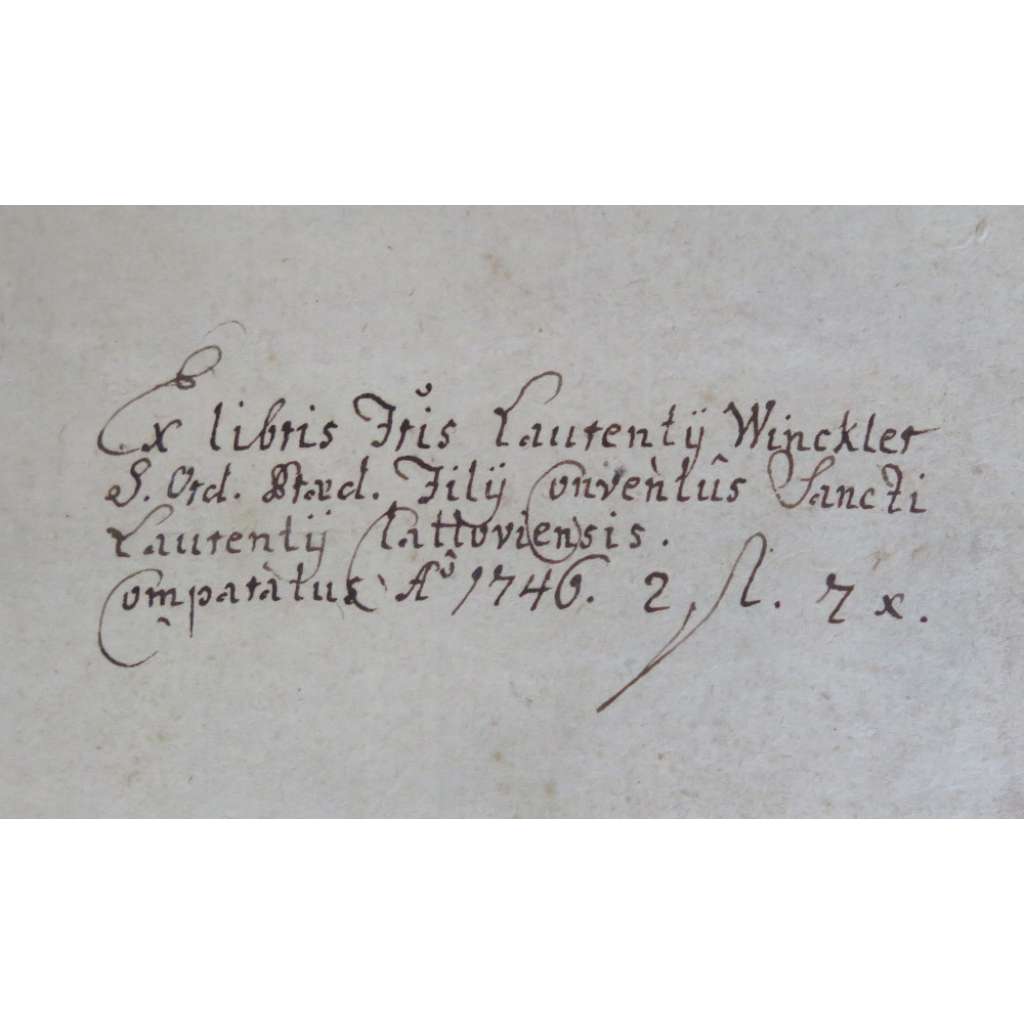 Ex libris Fr̆is Laurentij Winckler
S. Ord. Præd. Filij Conventûs Sancti
Laurentij Cattoviensis.
Comparatus Aô 1746. 2 fl. 7 x.